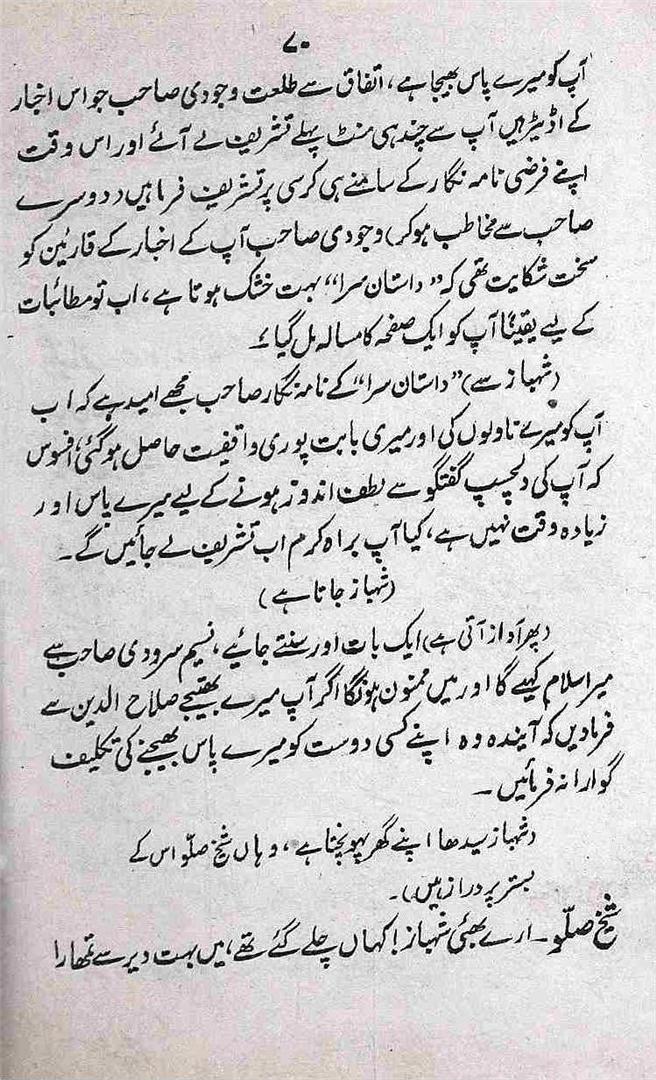 ۷۰
آپ کو میرے پاس بھیجا ہے، اتفاق سے طلعت وجودی صاحب جو اس اخبار
کے اڈیٹر ہیں آپ سے چند ہی منٹ پہلے تشریف لے آئے اور اس وقت
اپنے فرضی نامہ نگار کے سامنے ہی کرسی پر تشریف فرما ہیں (دوسرے
صاحب سے مخاطب ہوکر) وجودی صاحب آپ کے اخبار کے قارئین کو
سخت شکایت تھی کہ "داستان سرا" بہت خشک ہوتا ہے، اب تو مطائبات
کے لیے یقیناً آپ کو ایک صفحہ کا مسالہ مل گیا!
(شہباز سے) "داستان سرا" کے نامہ نگار صاحب مجھے امید ہے کہ اب
آپ کو میرے ناولوں کی اور میری بابت پوری واقفیت حاصل ہوگئی، افسوس
کہ آپ کی دلچسپ گفتگو سے لطف اندوز ہونے کے لیے میرے پاس اور
زیادہ وقت نہیں ہے، کیا آپ براہ کرم اب تشریف لے جائیں گے۔
(شہباز جاتا ہے)
(پھر آواز آتی ہے) ایک بات اور سنتے جائیے، نسیم سرودی صاحب سے
میرا سلام کہیے گا اور میں ممنون ہونگا اگر آپ میرے بھتیجے صلاح الدین سے
فرمادیں کہ آیندہ وہ اپنے کسی دوست کو میرے پاس بھیجنے کی تکلیف
گوارا نہ فرمائیں۔
(شہباز سیدھا اپنے گھر پہونچتا ہے، وہاں شیخ صلّو اس کے
بستر پر دراز ہیں)۔
شیخ صلّو۔ ارے بھئی شہباز! کہاں چلے گئے تھے، میں بہت دیر سے تمھارا